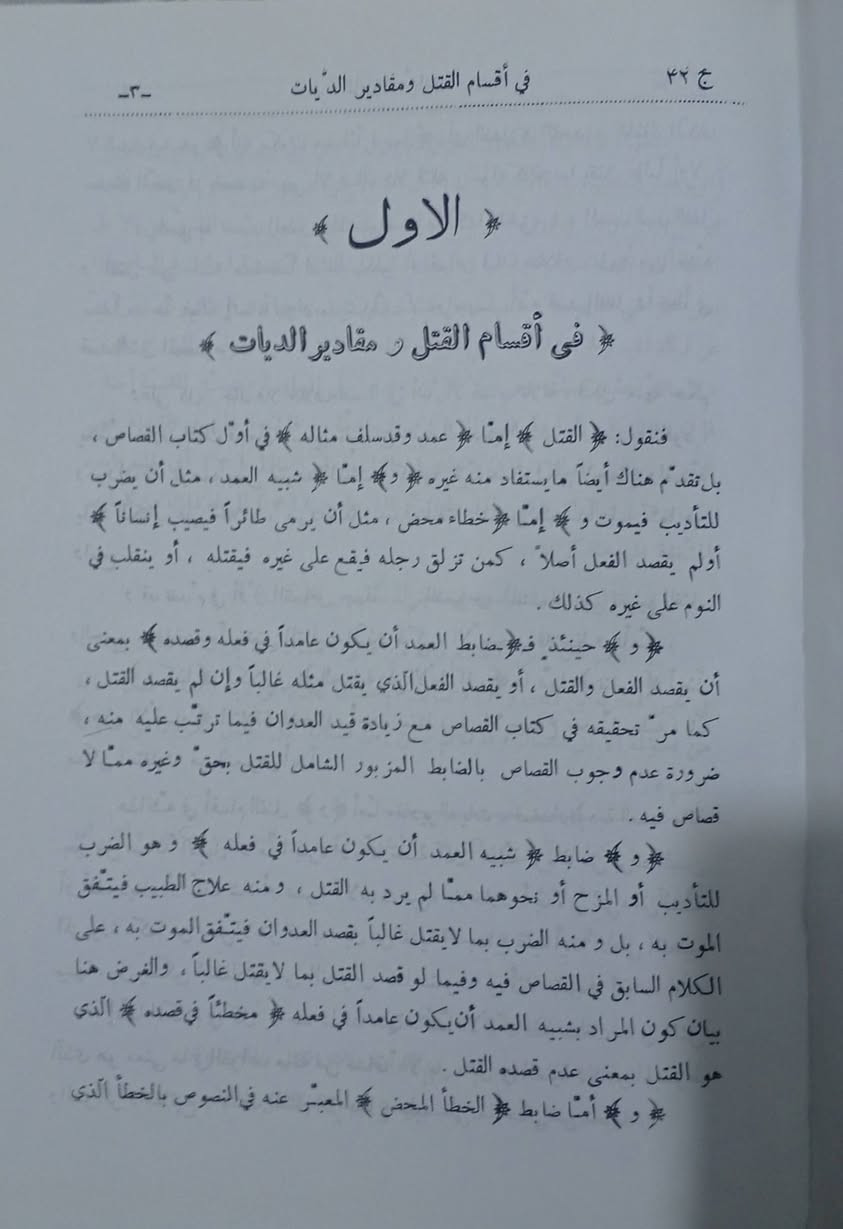 ج ۴۲ في أقسام القتل ومقادير الدّيات -۳-
﴿ الاول ﴾
﴿ في أقسام القتل و مقادير الديات ﴾
فنقول: ﴿ القتل ﴾ إمّا ﴿ عمد وقدسلف مثاله ﴾ في أوّل كتاب القصاص ،
بل تقدّم هناك أيضاً مايستفاد منه غيره ﴿ و﴾ إمّا ﴿ شبيه العمد ، مثل أن يضرب
للتأديب فيموت و ﴾ إمّا ﴿ خطاء محض ، مثل أن يرمى طائراً فيصيب إنساناً ﴾
أولم يقصد الفعل أصلاً ، كمن تزلق رجله فيقع على غيره فيقتله ، أو ينقلب في
النوم على غيره كذلك .
﴿ و ﴾ حينئذٍ فـ﴿ـضابط العمد أن يكون عامداً في فعله وقصده ﴾ بمعنى
أن يقصد الفعل والقتل ، أو يقصد الفعل الّذي يقتل مثله غالباً وإن لم يقصد القتل ،
كما مرّ تحقيقه في كتاب القصاص مع زيادة قيد العدوان فيما ترتّب عليه منه ،
ضرورة عدم وجوب القصاص بالضابط المزبور الشامل للقتل بحقّ وغيره ممّا لا
قصاص فيه .
﴿ و ﴾ ضابط ﴿ شبيه العمد أن يكون عامداً في فعله ﴾ و هو الضرب
للتأديب أو المزح أو نحوهما ممّا لم يرد به القتل ، ومنه علاج الطبيب فيتّفق
الموت به ، بل و منه الضرب بما لايقتل غالباً بقصد العدوان فيتّفق الموت به ، على
الكلام السابق في القصاص فيه وفيما لو قصد القتل بما لايقتل غالباً ، والغرض هنا
بيان كون المراد بشبيه العمد أن يكون عامداً في فعله ﴿ مخطئاً في قصده ﴾ الّذي
هو القتل بمعنى عدم قصده القتل .
﴿ و ﴾ أمّا ضابط ﴿ الخطأ المحض ﴾ المعبّر عنه في النصوص بالخطأ الّذي